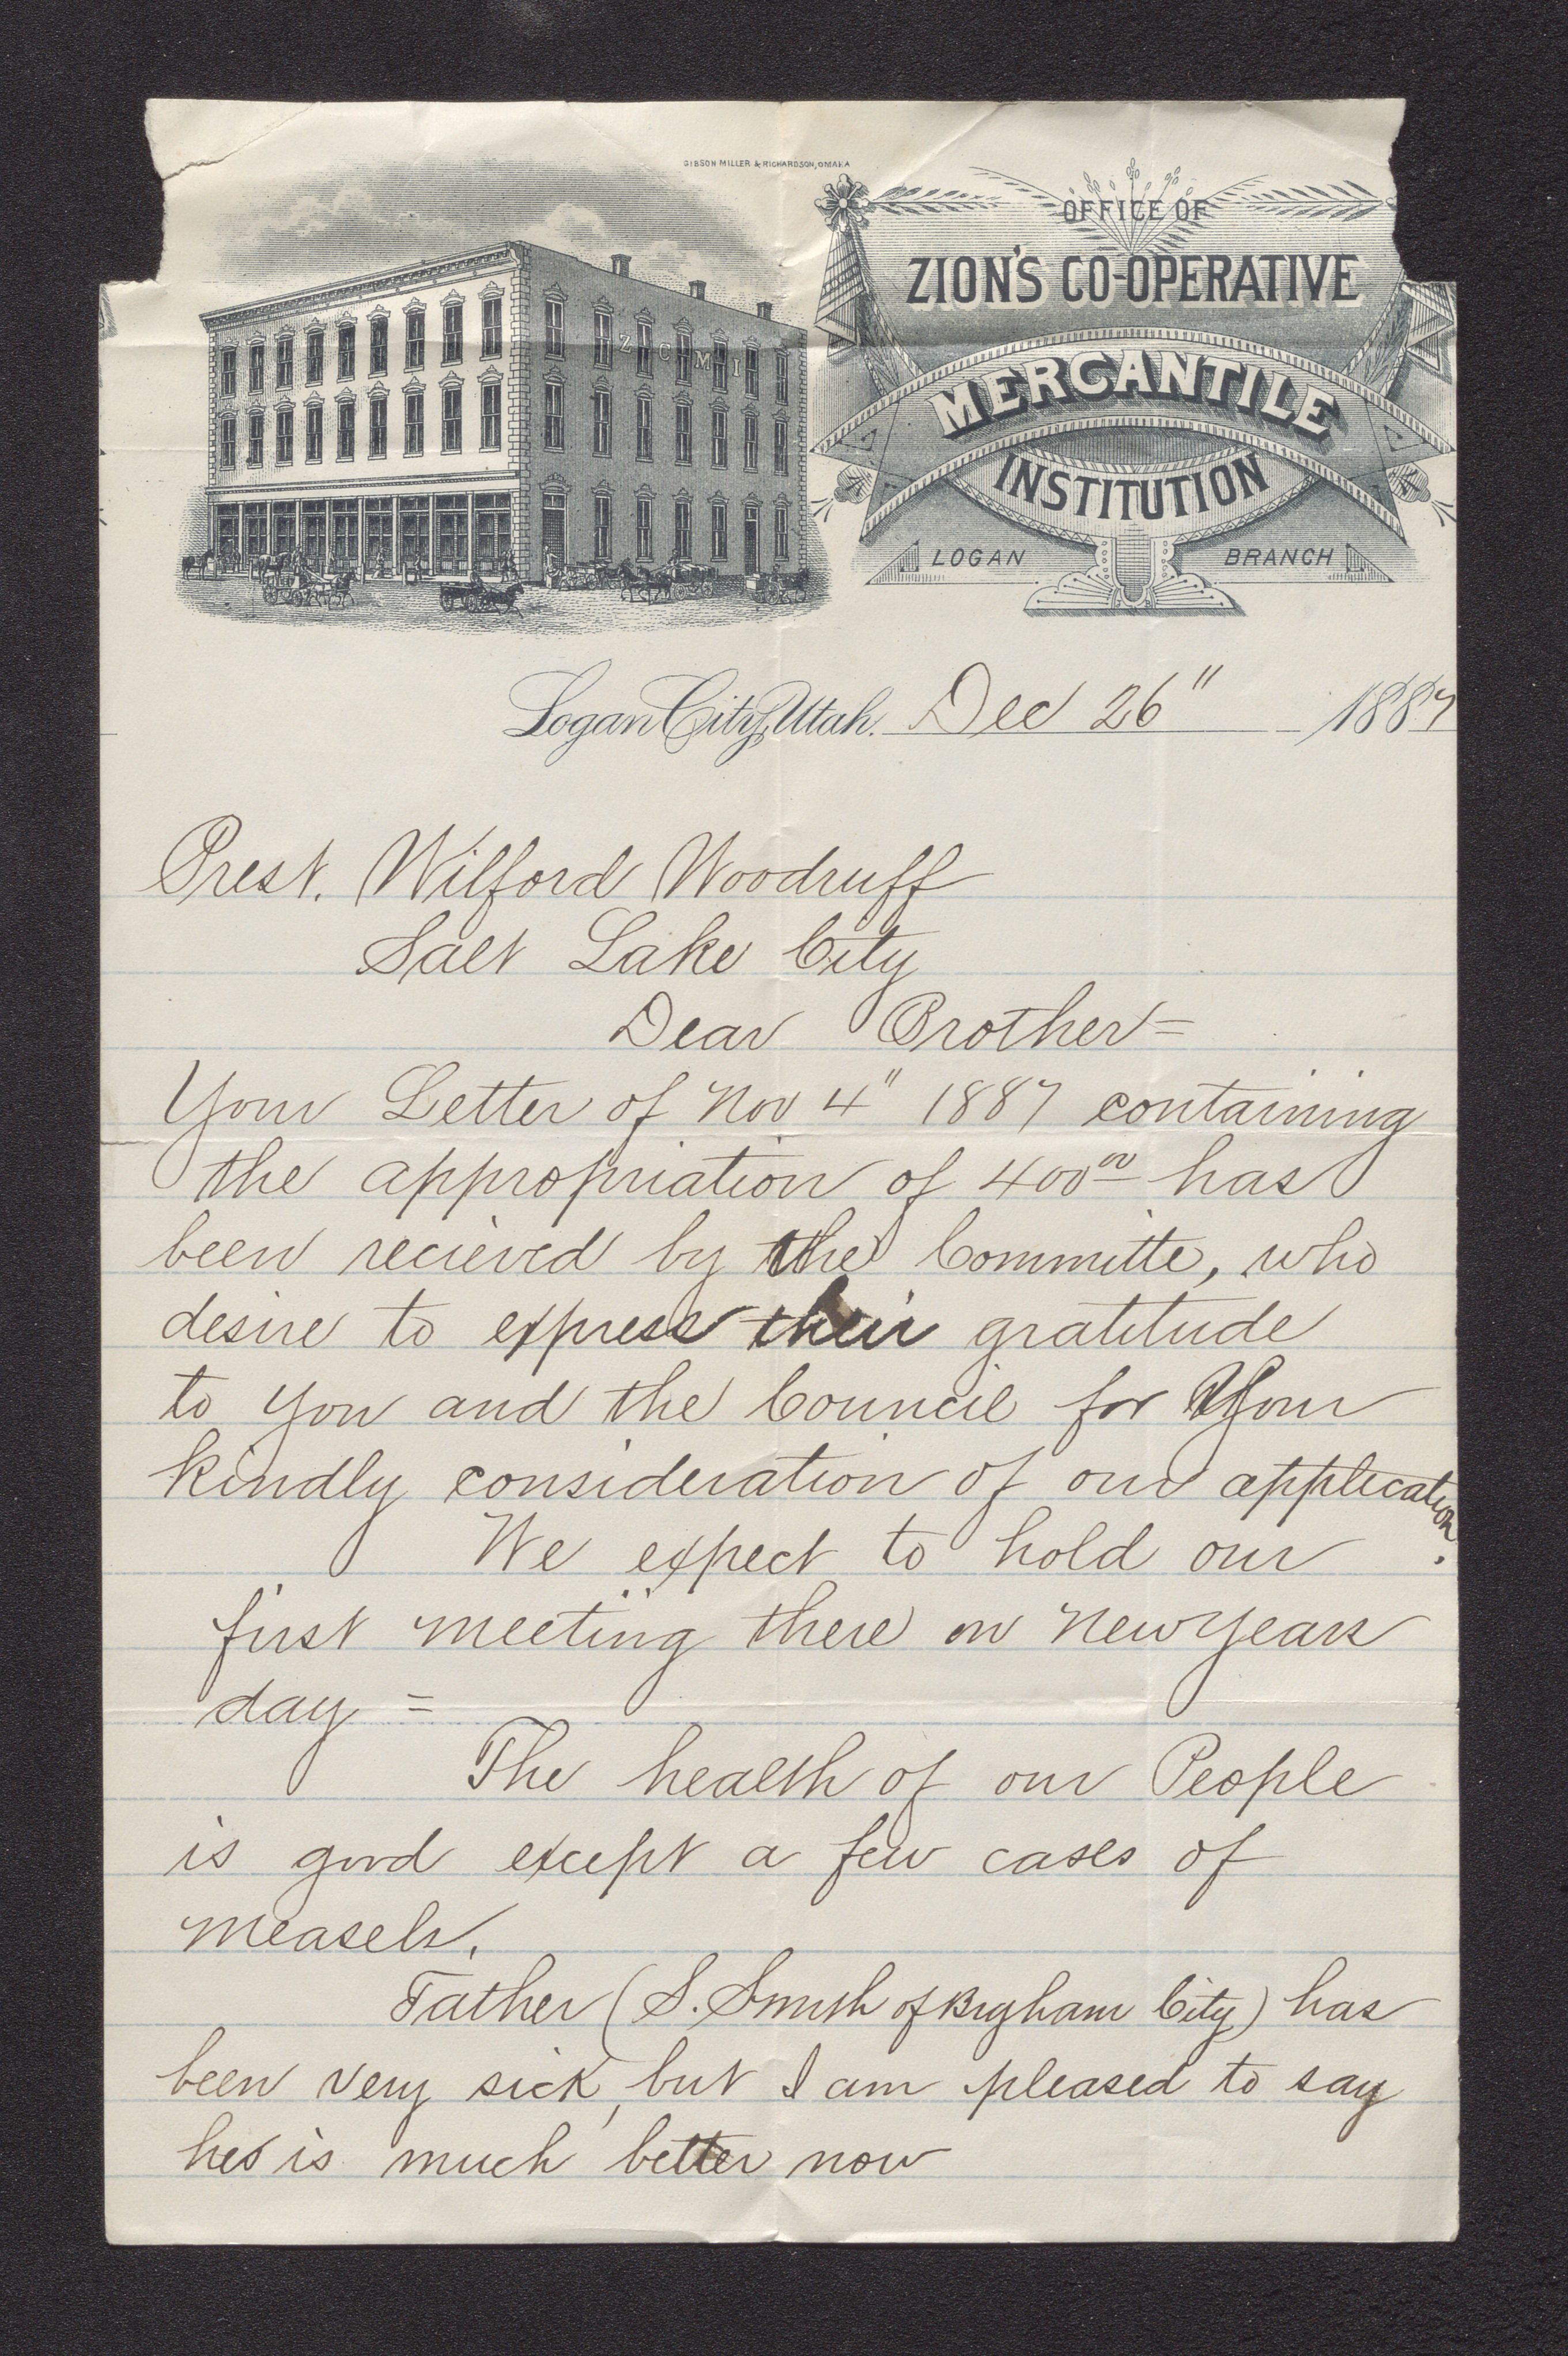 GIBSON MILLER & RICHARDSON, OMAHA
OFFICE OF
ZION'S CO-OPERATIVE
MERCANTILE
INSTITUTION
LOGAN BRANCH
Z C M I
Logan City, Utah. Dec 26" 1887
Prest. Wilford Woodruff
Salt Lake City
Dear Brother=
Your Letter of Nov 4" 1887 containing
the appropriation of 400 00 has
been recieved by the Committe, who
desire to express their gratitude
to you and the Council for Your
kindly consideration of our application.
We expect to hold our
first meeting there on New Years
day =
The health of our People
is good except a few cases of
measels.
Father (S. Smith of Brigham City) has
been very sick, but I am pleased to say
he is much better now